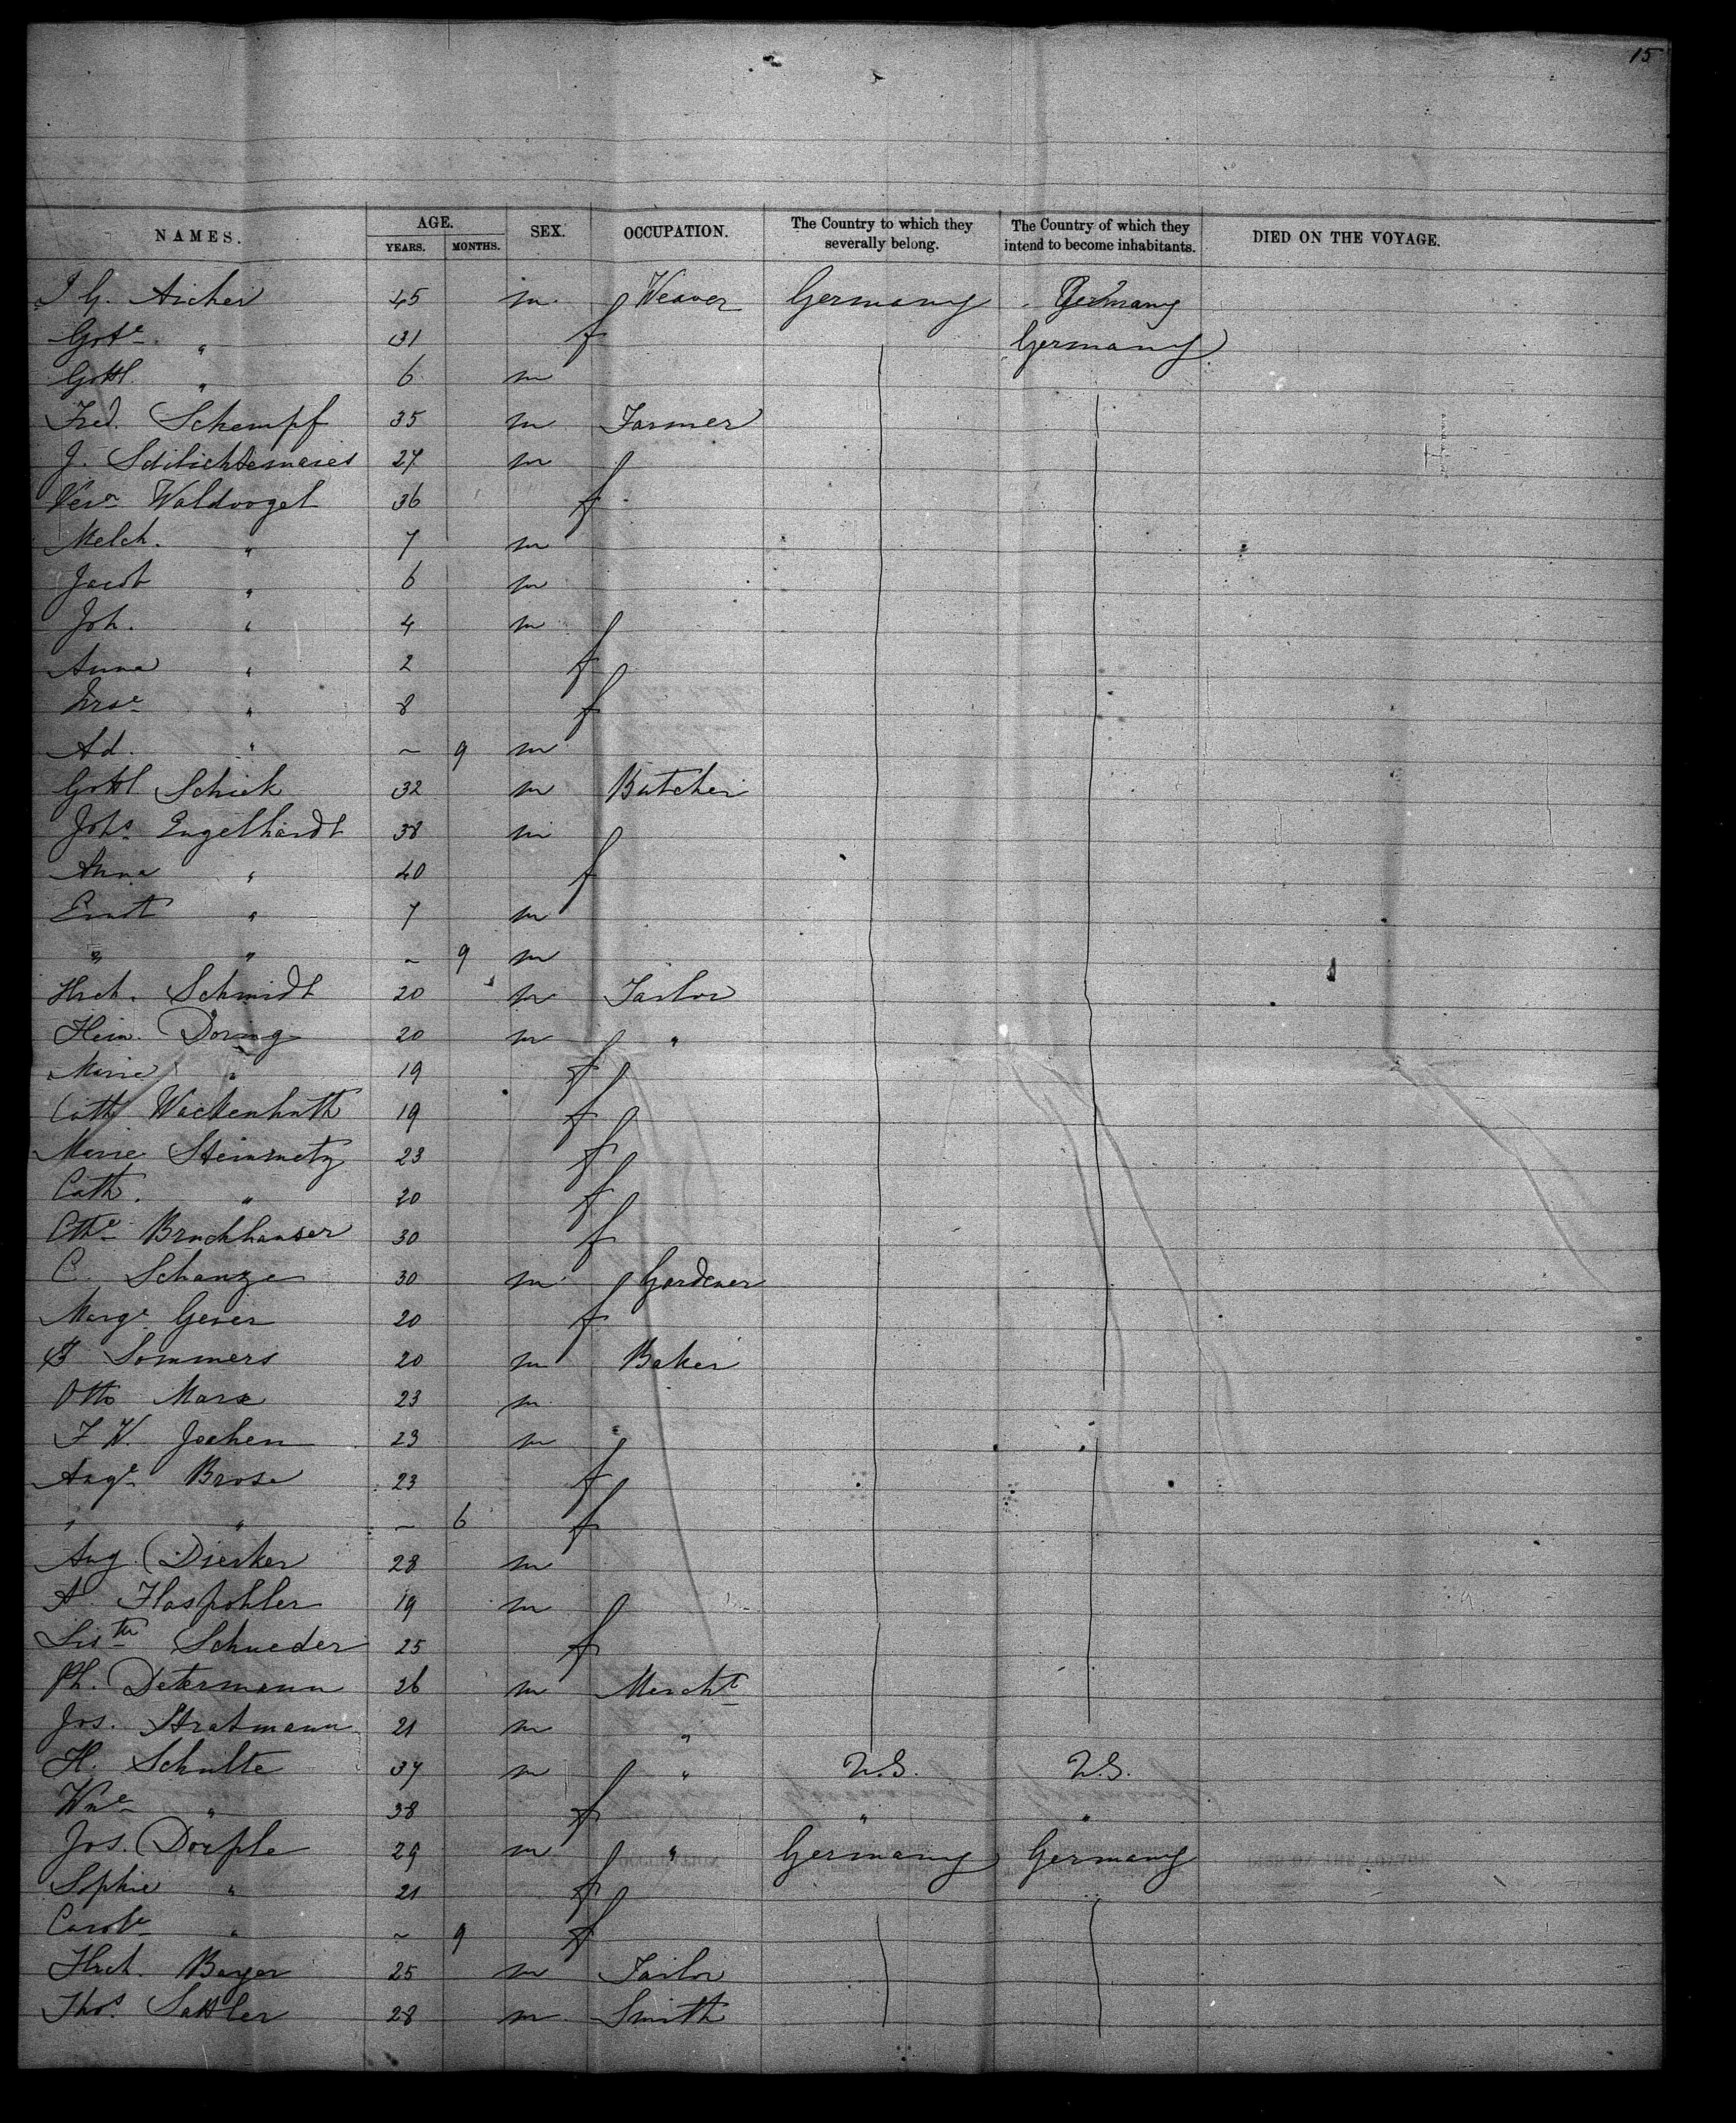 15
NAMES. AGE. YEARS. MONTHS. SEX. OCCUPATION. The Country to which they severally belong. The Country of which they intend to become inhabitants. DIED ON THE VOYAGE.
J G. Aicher 45 m Weaver Germany Germany
Gote " 31 f Germany
Gottl. " 6 m
Fred. Schempf 35 m Farmer
J. 27 m
Vera Waldvogel 36 f
Melch. " 7 m
Jacob " 6 m
Joh. " 4 m
Anna " 2 f
Urse " 8 f
Ad. " ~ 9 m
Gottl Schick 32 m Butcher
Johs Engelhardt 38 m
Anna " 40 f
Ernst " 7 m
" " ~ 9 m
Hrch. Schmidt 20 m Tailor
Hein. Doring 20 m "
Marie " 19 f
Cath Wackenhuth 19 f
Marie Steinmetz 23 f
Cath. " 20 f
Cthe Bruchhauser 30 f
C. Schanze 30 m Gardener
Marge Geier 20 f
Sommers 20 m Baker
Otto Marx 23 m
F W. Jochem 23 m
Auge Brose 23 f
" " ~ 6 f
Aug Dierker 28 m
A. Flaspohler 19 m
Schneder 25 f
Ph. Determann 26 m Mercht
Jos. Stratmann 21 m "
H. Schulte 37 m " U.S. U.S.
Wme " 38 f " "
Jos. Dorfle 29 m " Germany Germany
Sophie " 21 f
Carole " ~ 9 f
Hrch. Bayer 25 m Tailor
Thos. Sattler 28 m Smith